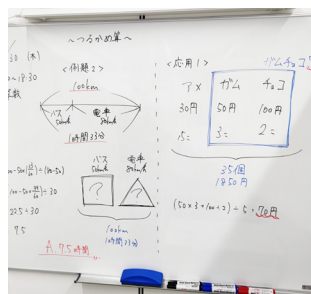 〜つるかめ算〜
30 (木)
〜18:30
<例題2>
100km
バス
電車
50km/h
80km/h
10時間33分
バス
50km/h
電車
80km/h
?
?
100km
10時間33分
22.5÷30
7.5
A. 7.5時間
<応用1>
ガムチョコ
アメ ガム チョコ
30円 50円 100円
15= 3= 2=
35個
1850円
(50×3+100×2)÷5=70円